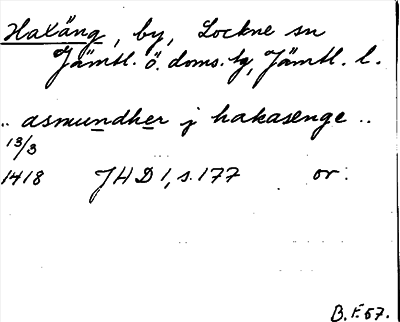 Haxäng, by, Lockne sn
Jämtl. ö. doms. tg, Jämtl. l.
.. asmundher j hakasænge ..
13/3
1418 JHD 1, s. 177 or.
B. F. 57.